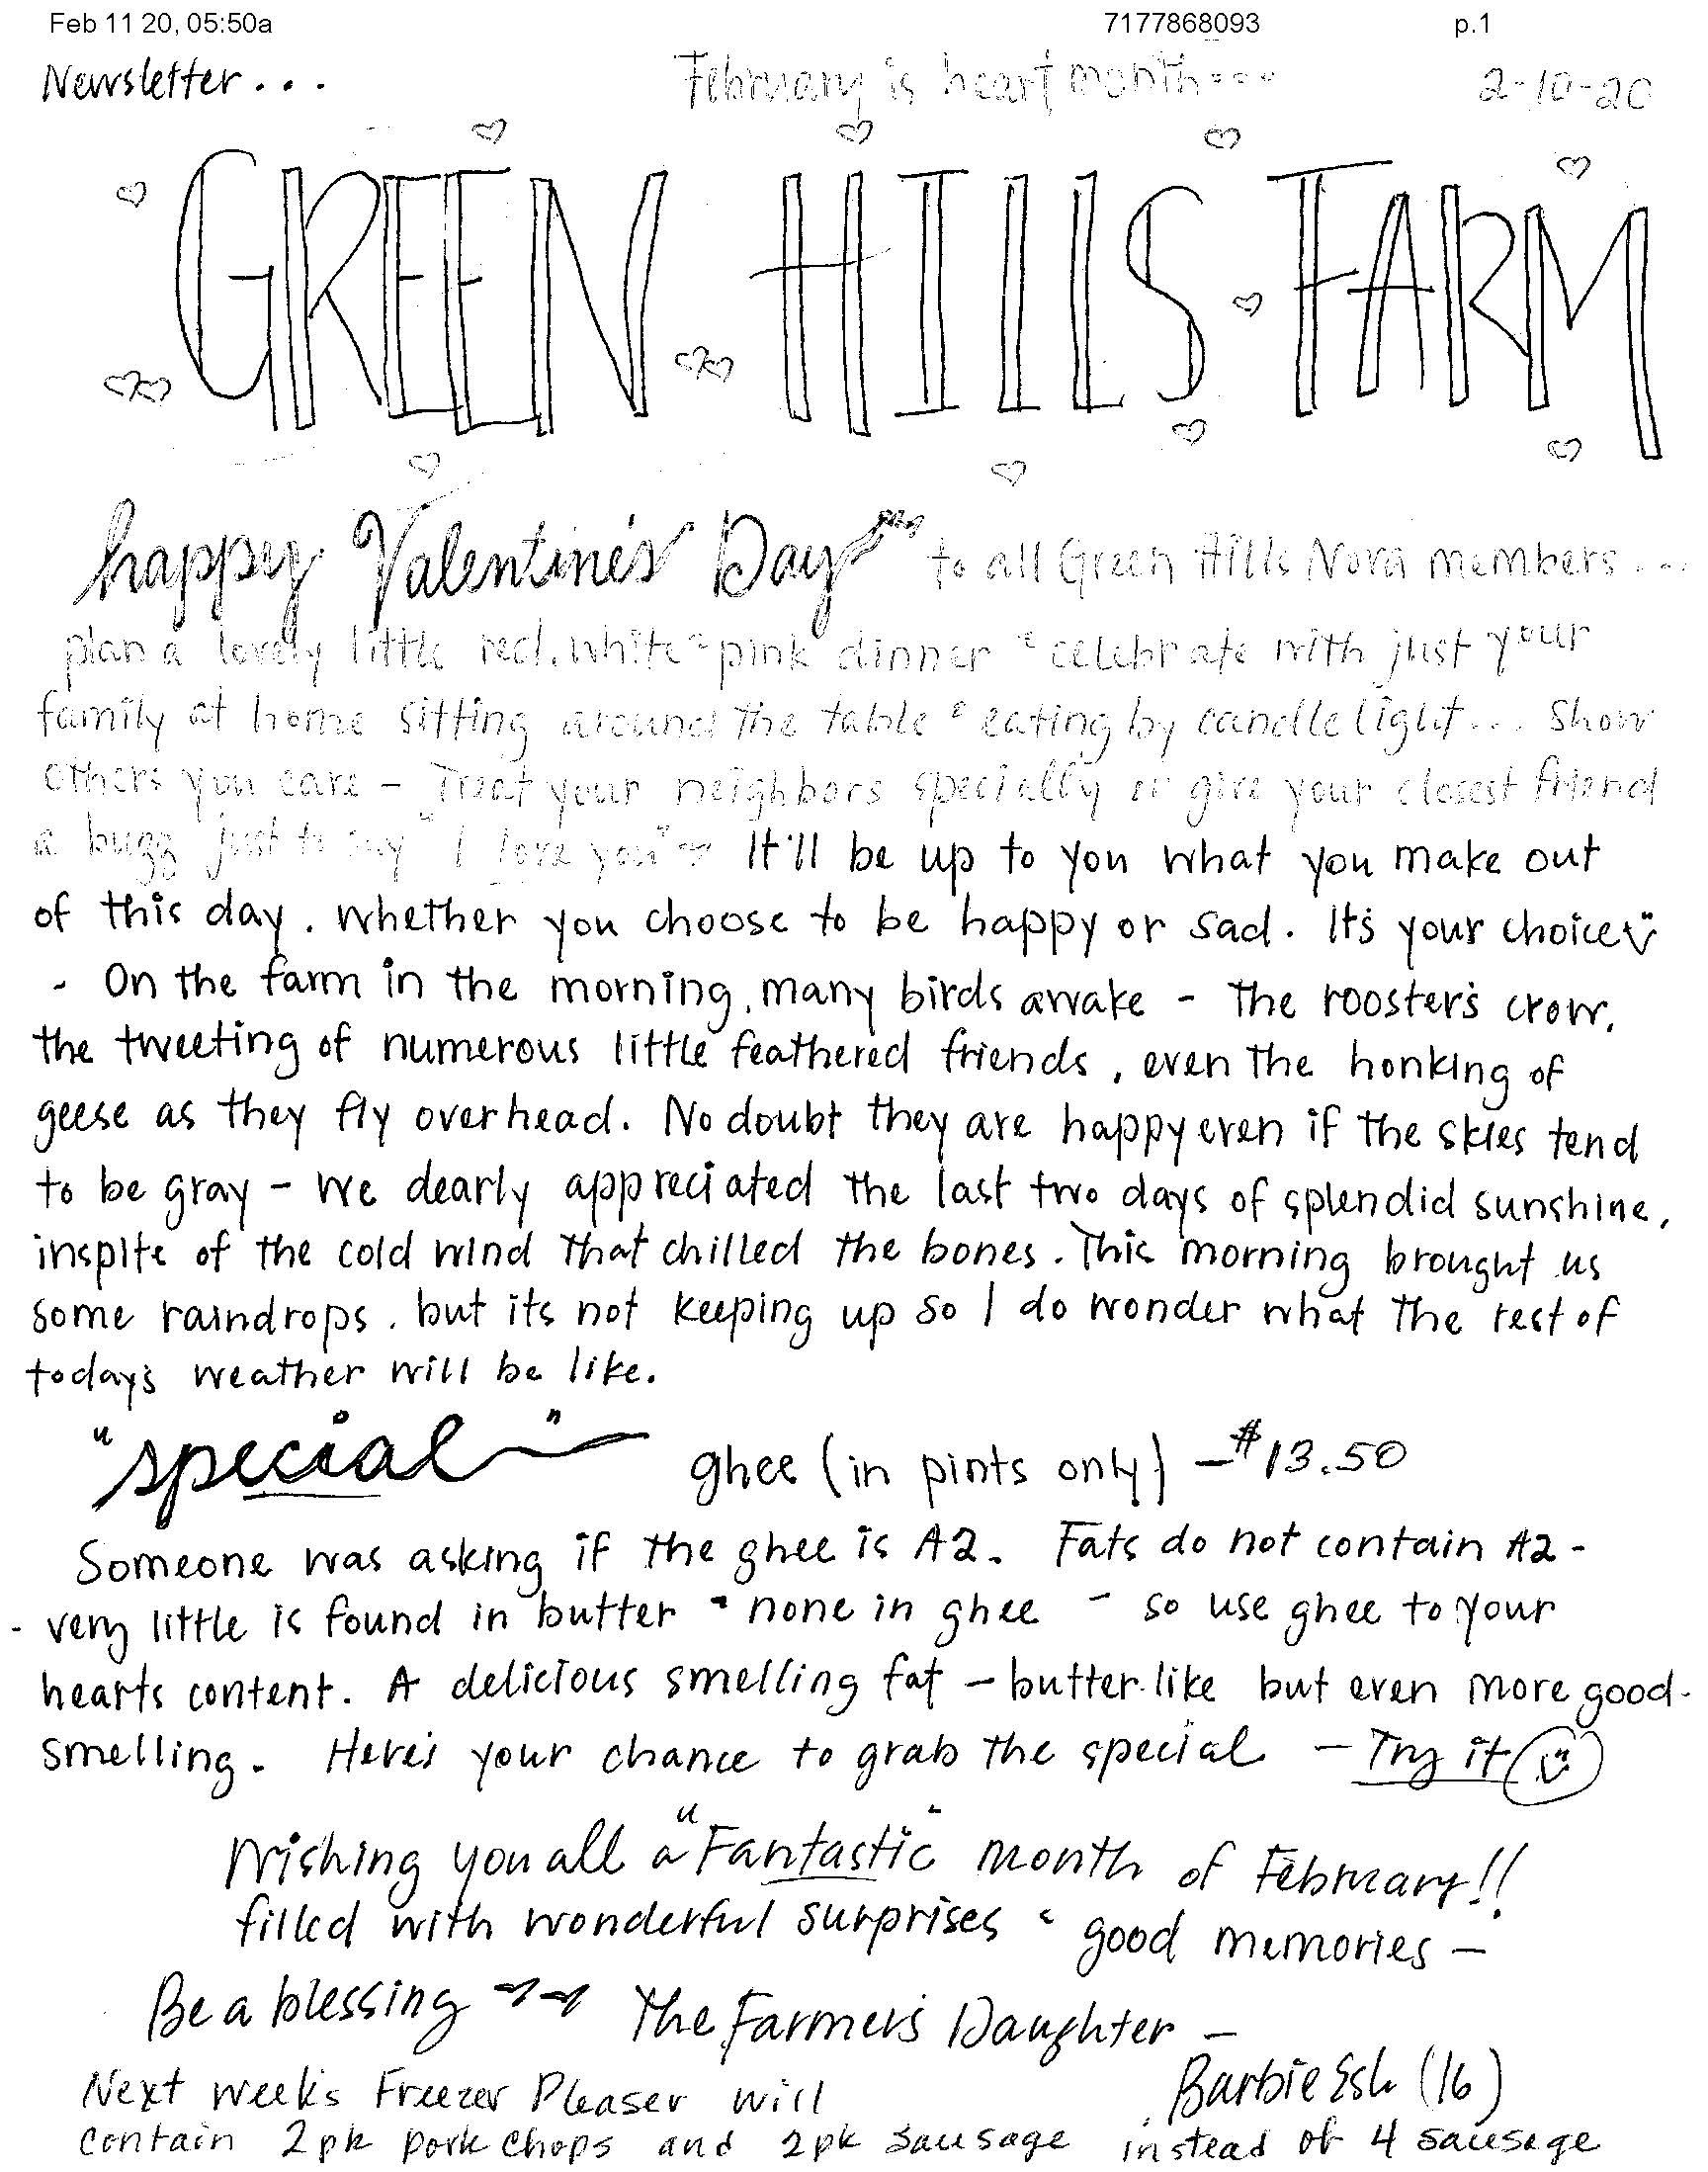 Feb 11 20, 05:50a 7177868093 p.1
Newsletter... February is heart month... 2-10-20
GREEN HILLS FARM
happy Valentine's Day to all Green Hills Nova members...
plan a lovely little red, white & pink dinner & celebrate with just your
family at home sitting around the table & eating by candle light... Show
others you care - Treat your neighbors specially or give your closest friend
a hugg just to say "I love you" It'll be up to you what you make out
of this day. Whether you choose to be happy or sad. It's your choice
- On the farm in the morning, many birds awake - The rooster's crow,
the tweeting of numerous little feathered friends, even the honking of
geese as they fly overhead. No doubt they are happy even if the skies tend
to be gray - We dearly appreciated the last two days of splendid sunshine,
inspite of the cold wind that chilled the bones. This morning brought us
some raindrops, but its not keeping up so I do wonder what the rest of
today's weather will be like.
"special" ghee (in pints only) - $13.50
Someone was asking if the ghee is A2. Fats do not contain A2 -
- very little is found in butter - none in ghee - so use ghee to your
hearts content. A delicious smelling fat - butter-like but even more good-
smelling. Here's your chance to grab the special - Try it
Wishing you all a "Fantastic" month of February!!
filled with wonderful surprises & good memories -
Be a blessing The Farmer's Daughter -
Barbie Esh (16)
Next week's Freezer Pleaser will
contain 2pk pork chops and 2pk sausage instead of 4 sausage